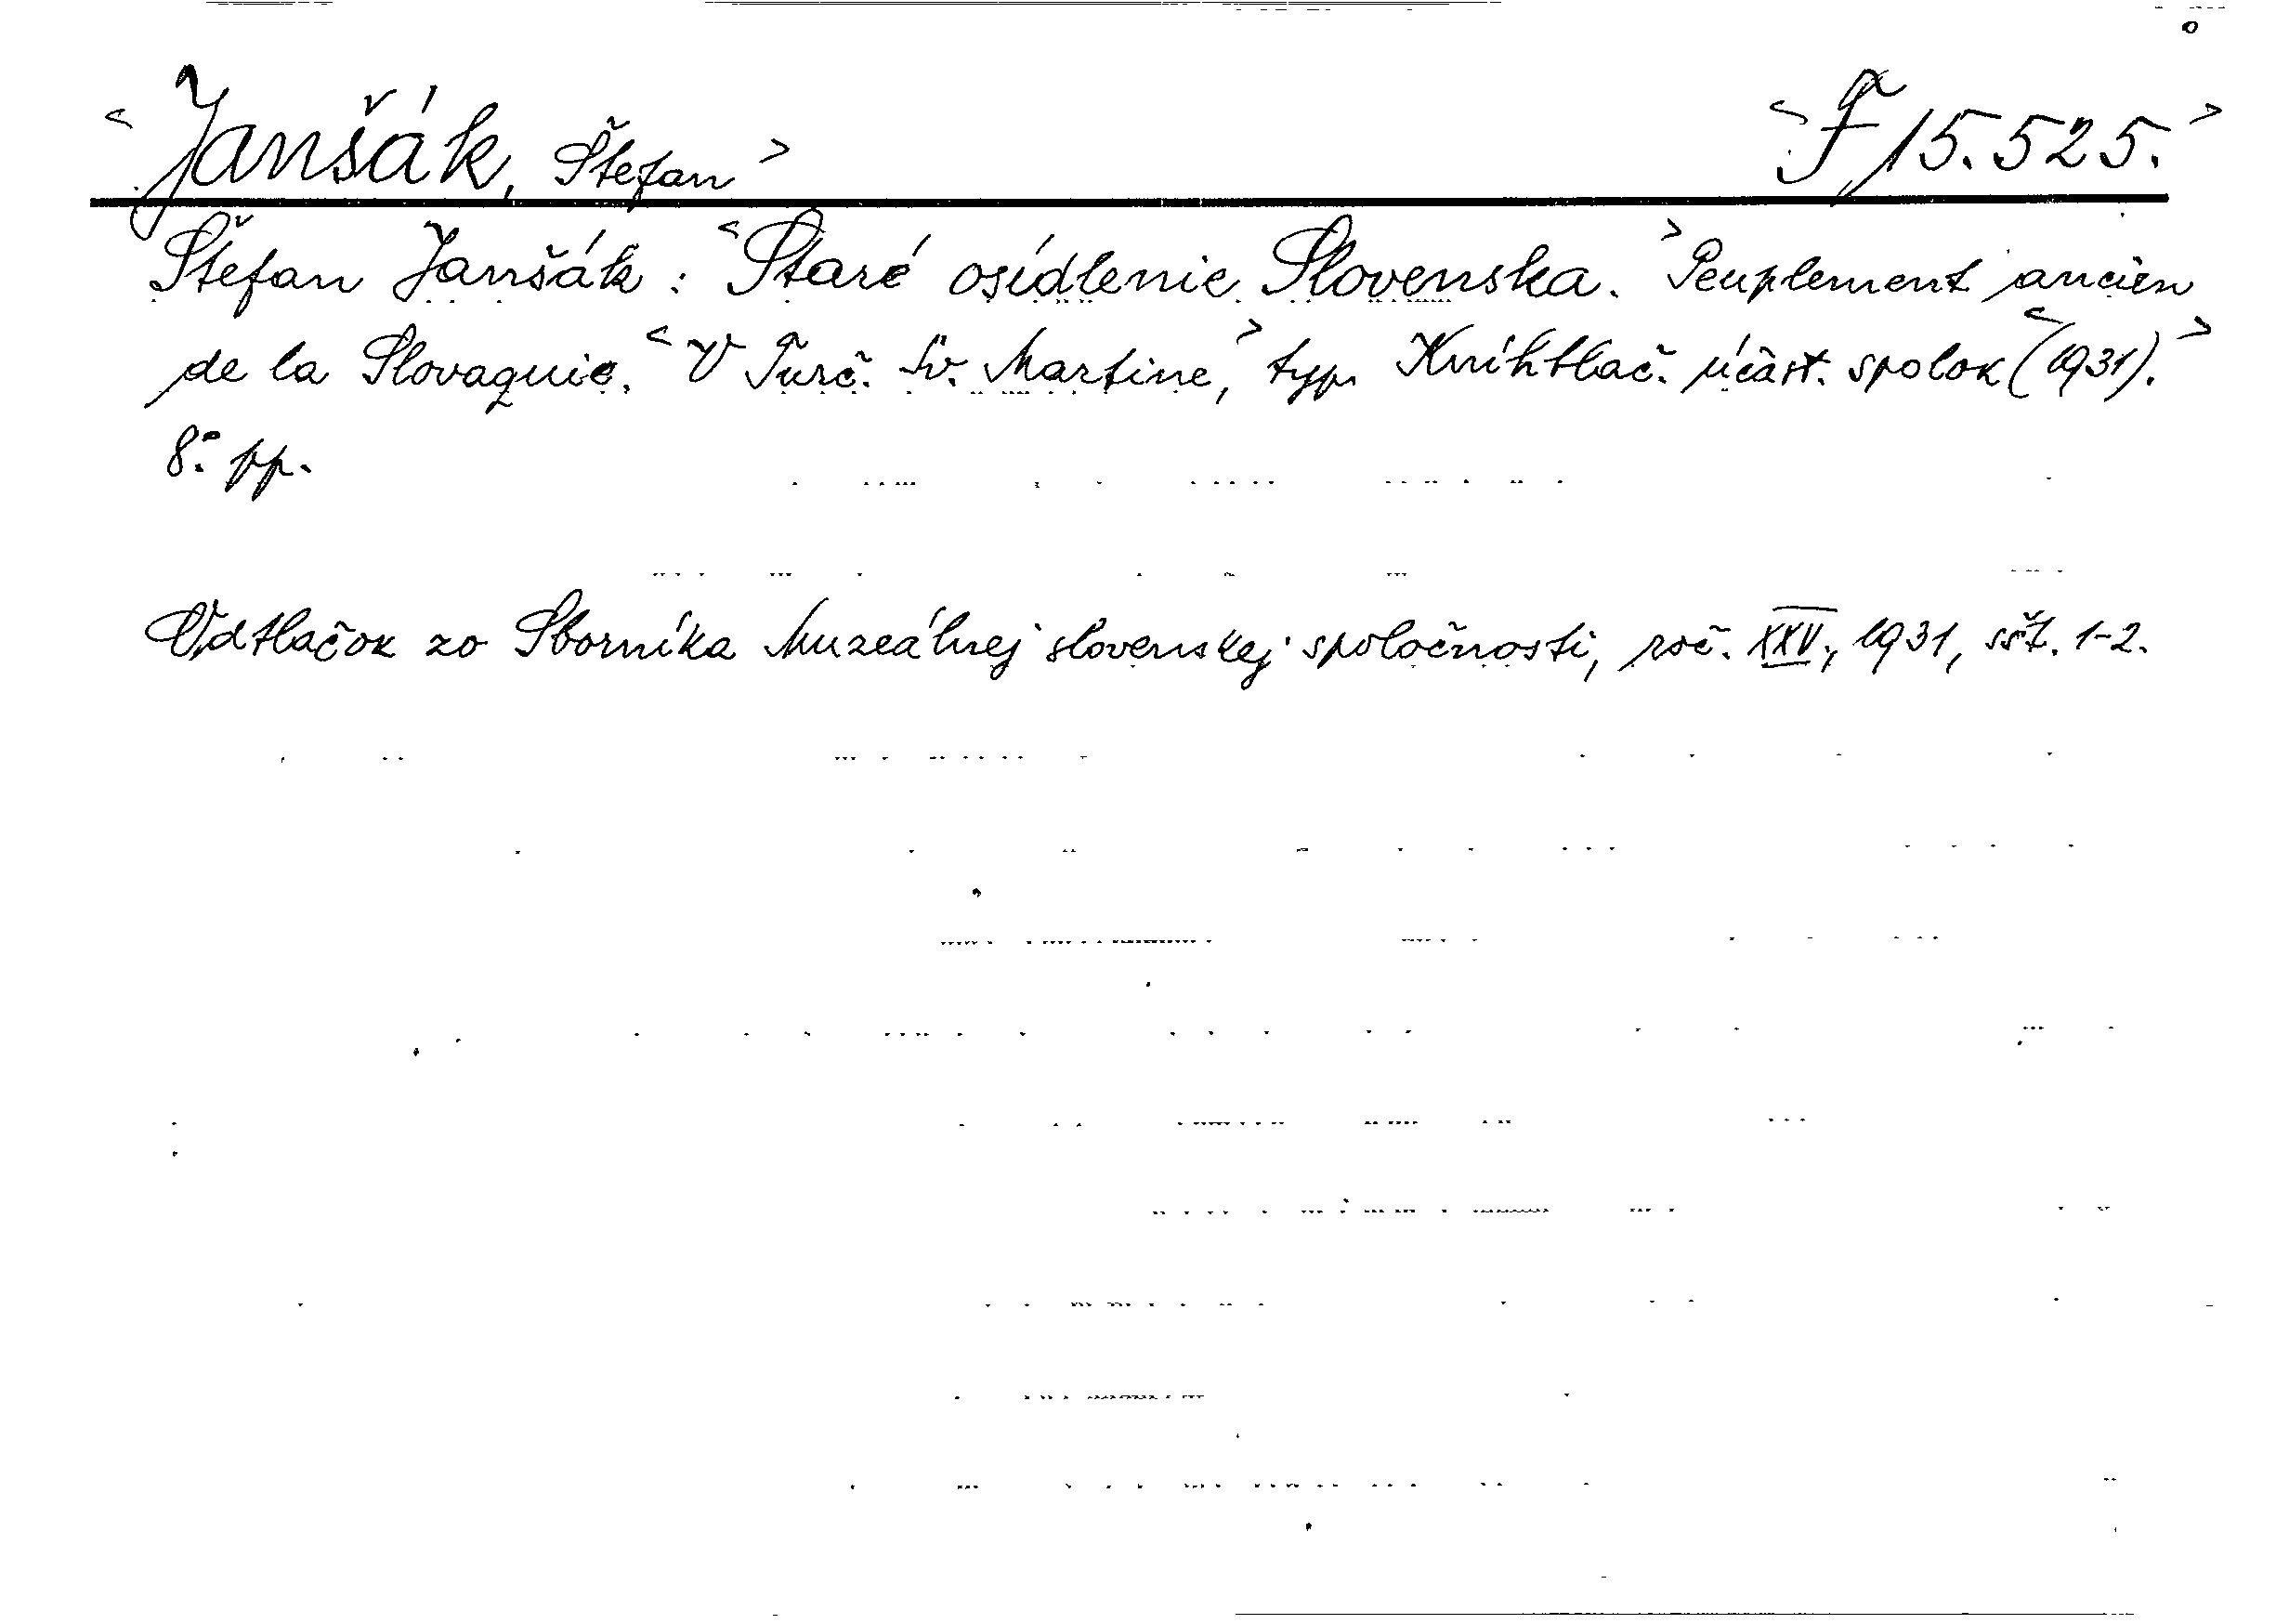 <Janšák, Štefan> <F 15.525.>
Štefan Janšák: <Staré osídlenie Slovenska.> Peuplement ancien
de la Slovaquie. <V Turč. Sv. Martine,> typ. Kníhtlač. účast. spolok <(1931).>
8.° pp.
Odtlačok zo Sborníka Muzeálnej slovenskej spoločnosti, roč. XXV., 1931, sšt. 1-2.